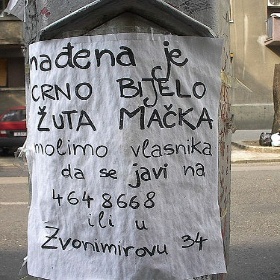 nađena je
CRNO BIJELO
ŽUTA MAČKA
molimo vlasnika
da se javi na
4648668
ili u
Zvonimirovu 34